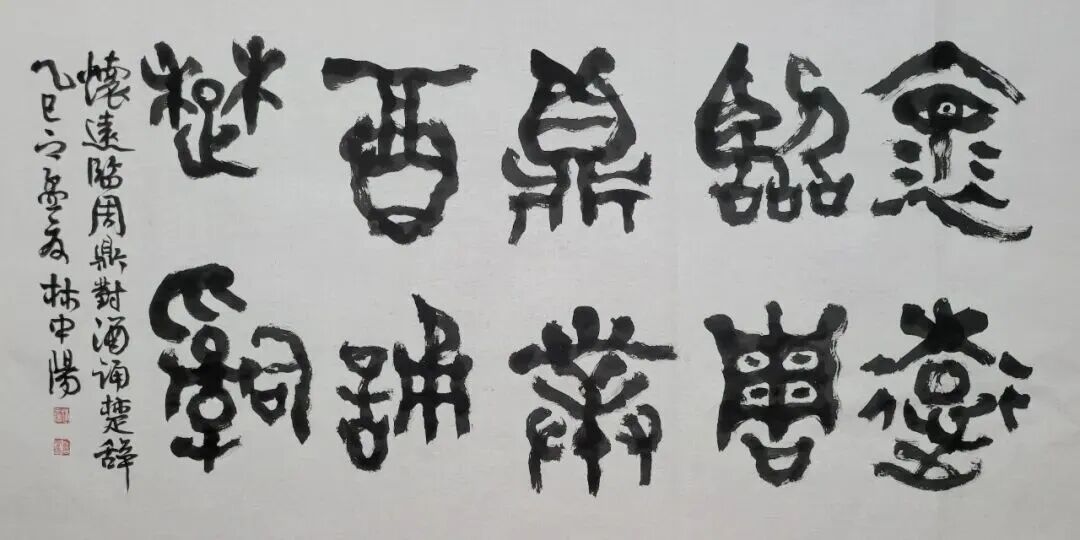 懷遠
臨周
鼎對
酒誦
楚辭
懷遠臨周鼎對酒誦楚辭
乙巳之孟夏 林中陽